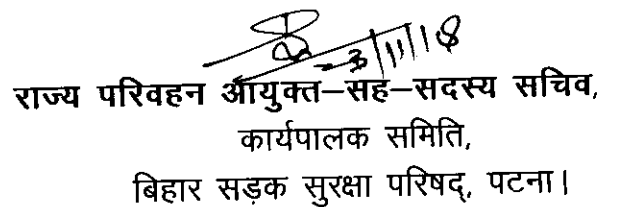 3/11/18
राज्य परिवहन आयुक्त–सह–सदस्य सचिव,
कार्यपालक समिति,
बिहार सड़क सुरक्षा परिषद्, पटना।